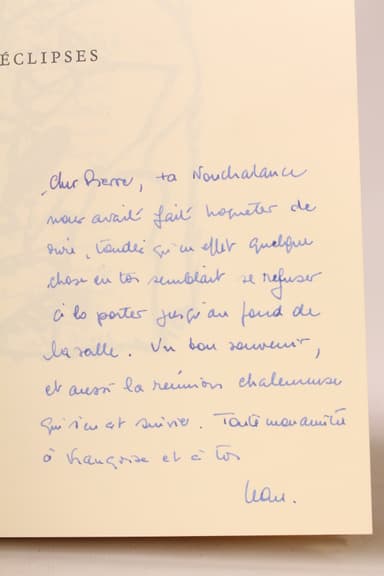 ÉCLIPSES
Cher Pierre, ta Nonchalance
nous avait fait hoqueter de
rire, tandis qu'en effet quelque
chose en toi semblait se refuser
à la porter jusqu'au fond de
la salle. Un bon souvenir,
et aussi la réunion chaleureuse
qui s'en est suivie. Toute mon amitié
à Françoise et à toi